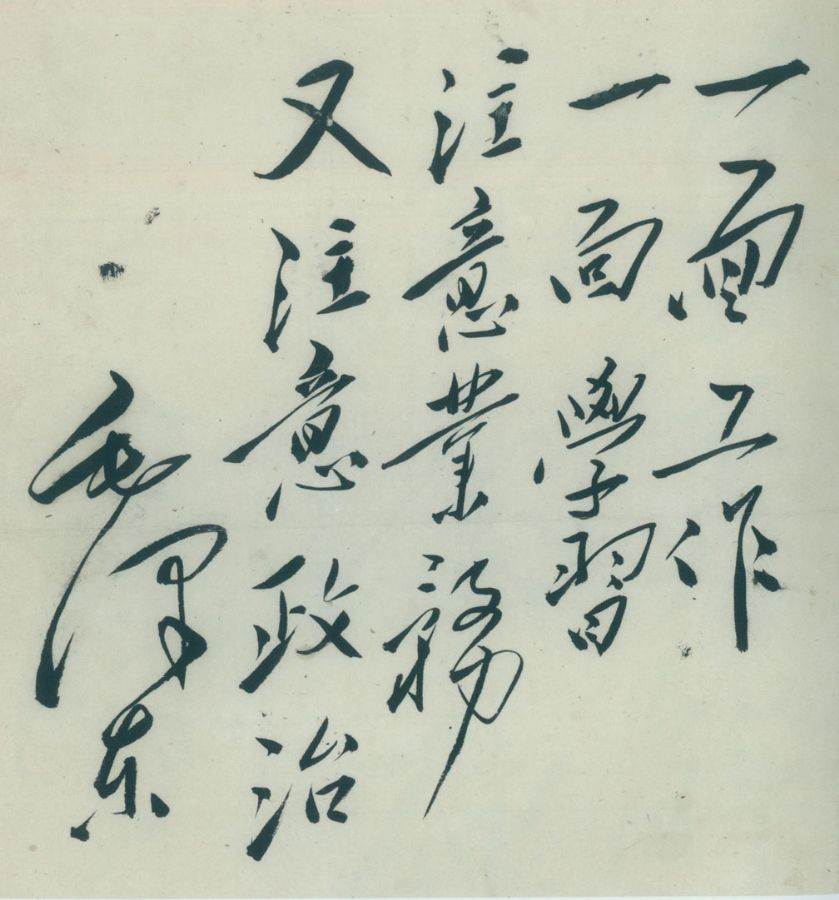 一面工作
一面學習
注意業務
又注意政治
毛澤東